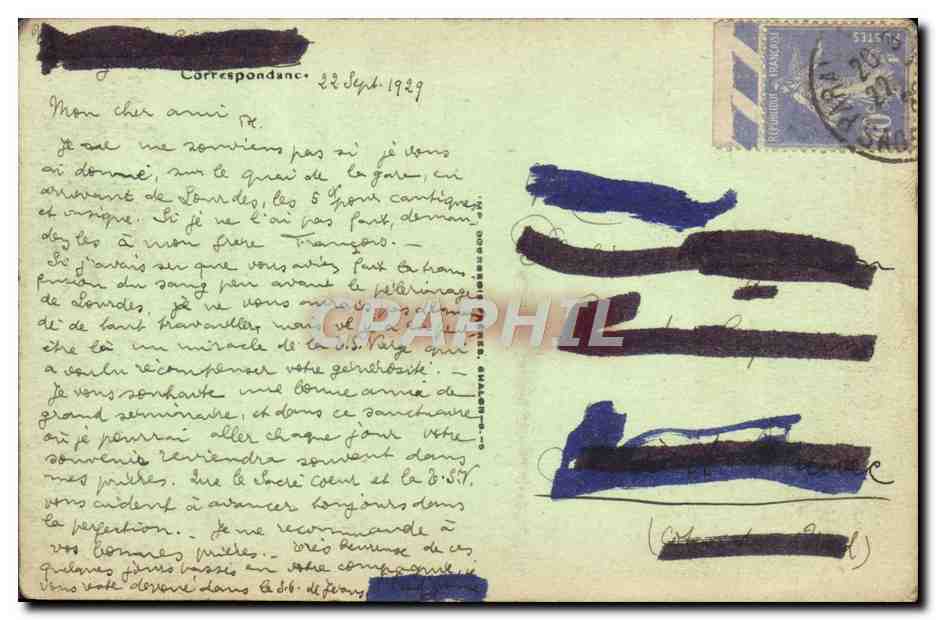 Correspondance
22 Sept. 1929
Mon cher ami
Je me souviens pas si je vous
ai donné, sur le quai de la gare, en
arrivant de Lourdes, les 5f pour cantiques
et insigne. Si je ne l'ai pas fait, deman-
dez les à mon frère François. —
Si j'avais su que vous aviez fait la trans
fusion du sang peu avant le pèlerinage
de Lourdes, je ne vous aurais pas deman
dé de tant travailler, mais
être là un miracle de la T.S. Vierge qui
a voulu récompenser votre générosité. —
Je vous souhaite une bonne année de
grand séminaire, et dans ce sanctuaire
où je pourrai aller chaque jour votre
souvenir reviendra souvent dans
mes prières. Que le Sacré Coeur et la T.S.V.
vous aident à avancer toujours dans
la perfection. — Je me recommande à
vos bonnes prières. — Très heureuse de ces
quelques jours passés en votre compagnie, je
vous reste dévoué dans le
IMP. CHALON-S-S
REPUBLIQUE FRANÇAISE
POSTES
PARAY
CPAPHIL